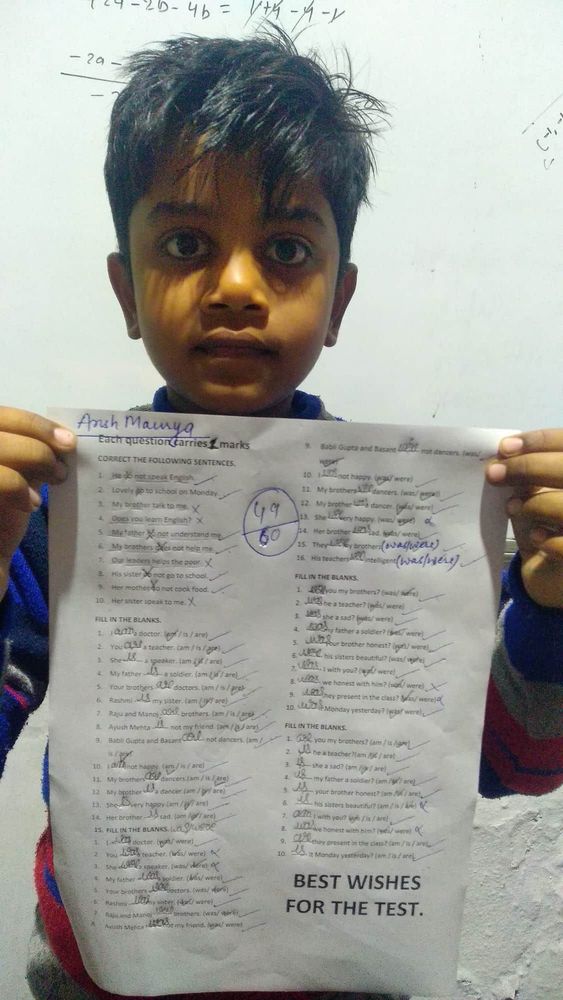 Arsh Maurya
Each question carries 1 marks
CORRECT THE FOLLOWING SENTENCES.
1. He do not speak English.
2. Lovely go to school on Monday
3. My brother talk to me.
4. Does you learn English?
5. My father do not understand me
6. My brothers do not help me.
7. Our leaders helps the poor.
8. His sister do not go to school.
9. Her mother do not cook food.
10. Her sister speak to me.
FILL IN THE BLANKS.
1. I am a doctor. (am / is / are)
2. You are a teacher. (am / is / are)
3. She is a speaker. (am / is / are)
4. My father is a soldier. (am / is / are)
5. Your brothers are doctors. (am / is / are)
6. Rashmi is my sister. (am / is / are)
7. Raju and Manoj are brothers. (am / is / are)
8. Ayush Mehta is not my friend. (am / is / are)
9. Babli Gupta and Basant are not dancers. (am /
is / are)
10. I am not happy. (am / is / are)
11. My brothers are dancers. (am / is / are)
12. My brother is a dancer. (am / is / are)
13. She is very happy (am / is / are)
14. Her brother is sad. (am / is / are)
15. FILL IN THE BLANKS. was/were
1. I was doctor. (was/ were)
2. You teacher. (was/ were)
3. She speaker. (was/ were)
4. My father was soldier. (was/ were)
5. Your brothers were doctors. (was/ were)
6. Rashmi was my sister. (was/ were)
7. Raju and Manoj were brothers. (was/ were)
8. Ayush Mehta my friend. (was/ were)
49
60
9. Babli Gupta and Basant were not dancers. (was/
were)
10. I not happy. (was/ were)
11. My brothers dancers. (was/ were)
12. My brother dancer. (was/ were)
13. She very happy. (was/ were)
14. Her brother was sad. (was/ were)
15. They brothers (was/were)
16. His teachers intelligent (was/were)
FILL IN THE BLANKS.
1. you my brothers? (was/ were)
2. was he a teacher? (was/ were)
3. was she a sad? (was/ were)
4. was my father a soldier? (was/ were)
5. was your brother honest? (was/ were)
6. were his sisters beautiful? (was/ were)
7. was I with you? (was/ were)
8. was we honest with him? (was/ were)
9. they present in the class? (was/ were)
10. was Monday yesterday? (was/ were)
FILL IN THE BLANKS.
1. are you my brothers? (am / is / are)
2. is he a teacher? (am / is / are)
3. is she a sad? (am / is / are)
4. is my father a soldier? (am / is / are)
5. is your brother honest? (am / is / are)
6. is his sisters beautiful? (am / is / are)
7. am I with you? (am / is / are)
8. we honest with him? (am / is / are)
9. are they present in the class? (am / is / are)
10. is it Monday yesterday? (am / is / are)
BEST WISHES
FOR THE TEST.